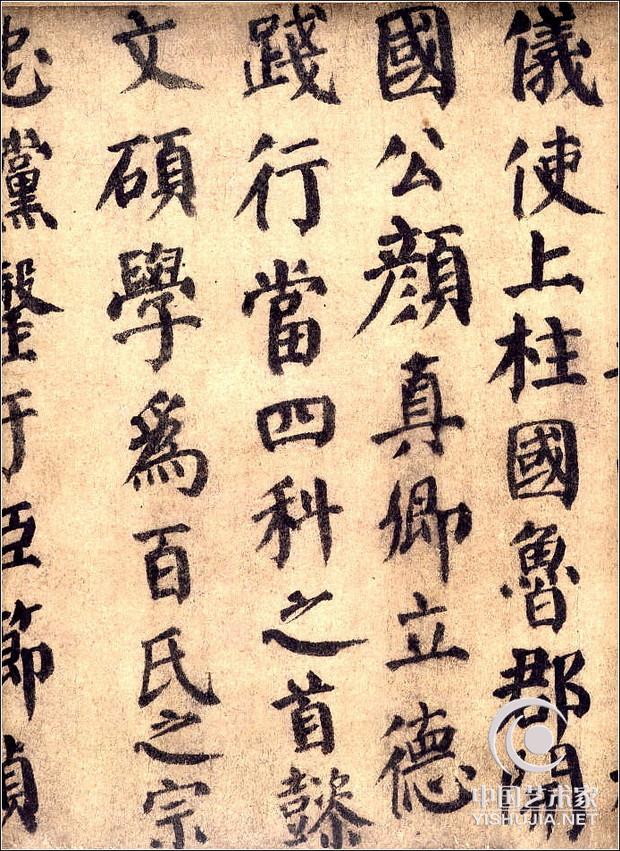 儀使上柱國魯郡開
國公顏真卿立德
踐行當四科之首懿
文碩學爲百氏之宗
忠讜罄于臣節貞
中国艺术家
YISHUJIA.NET